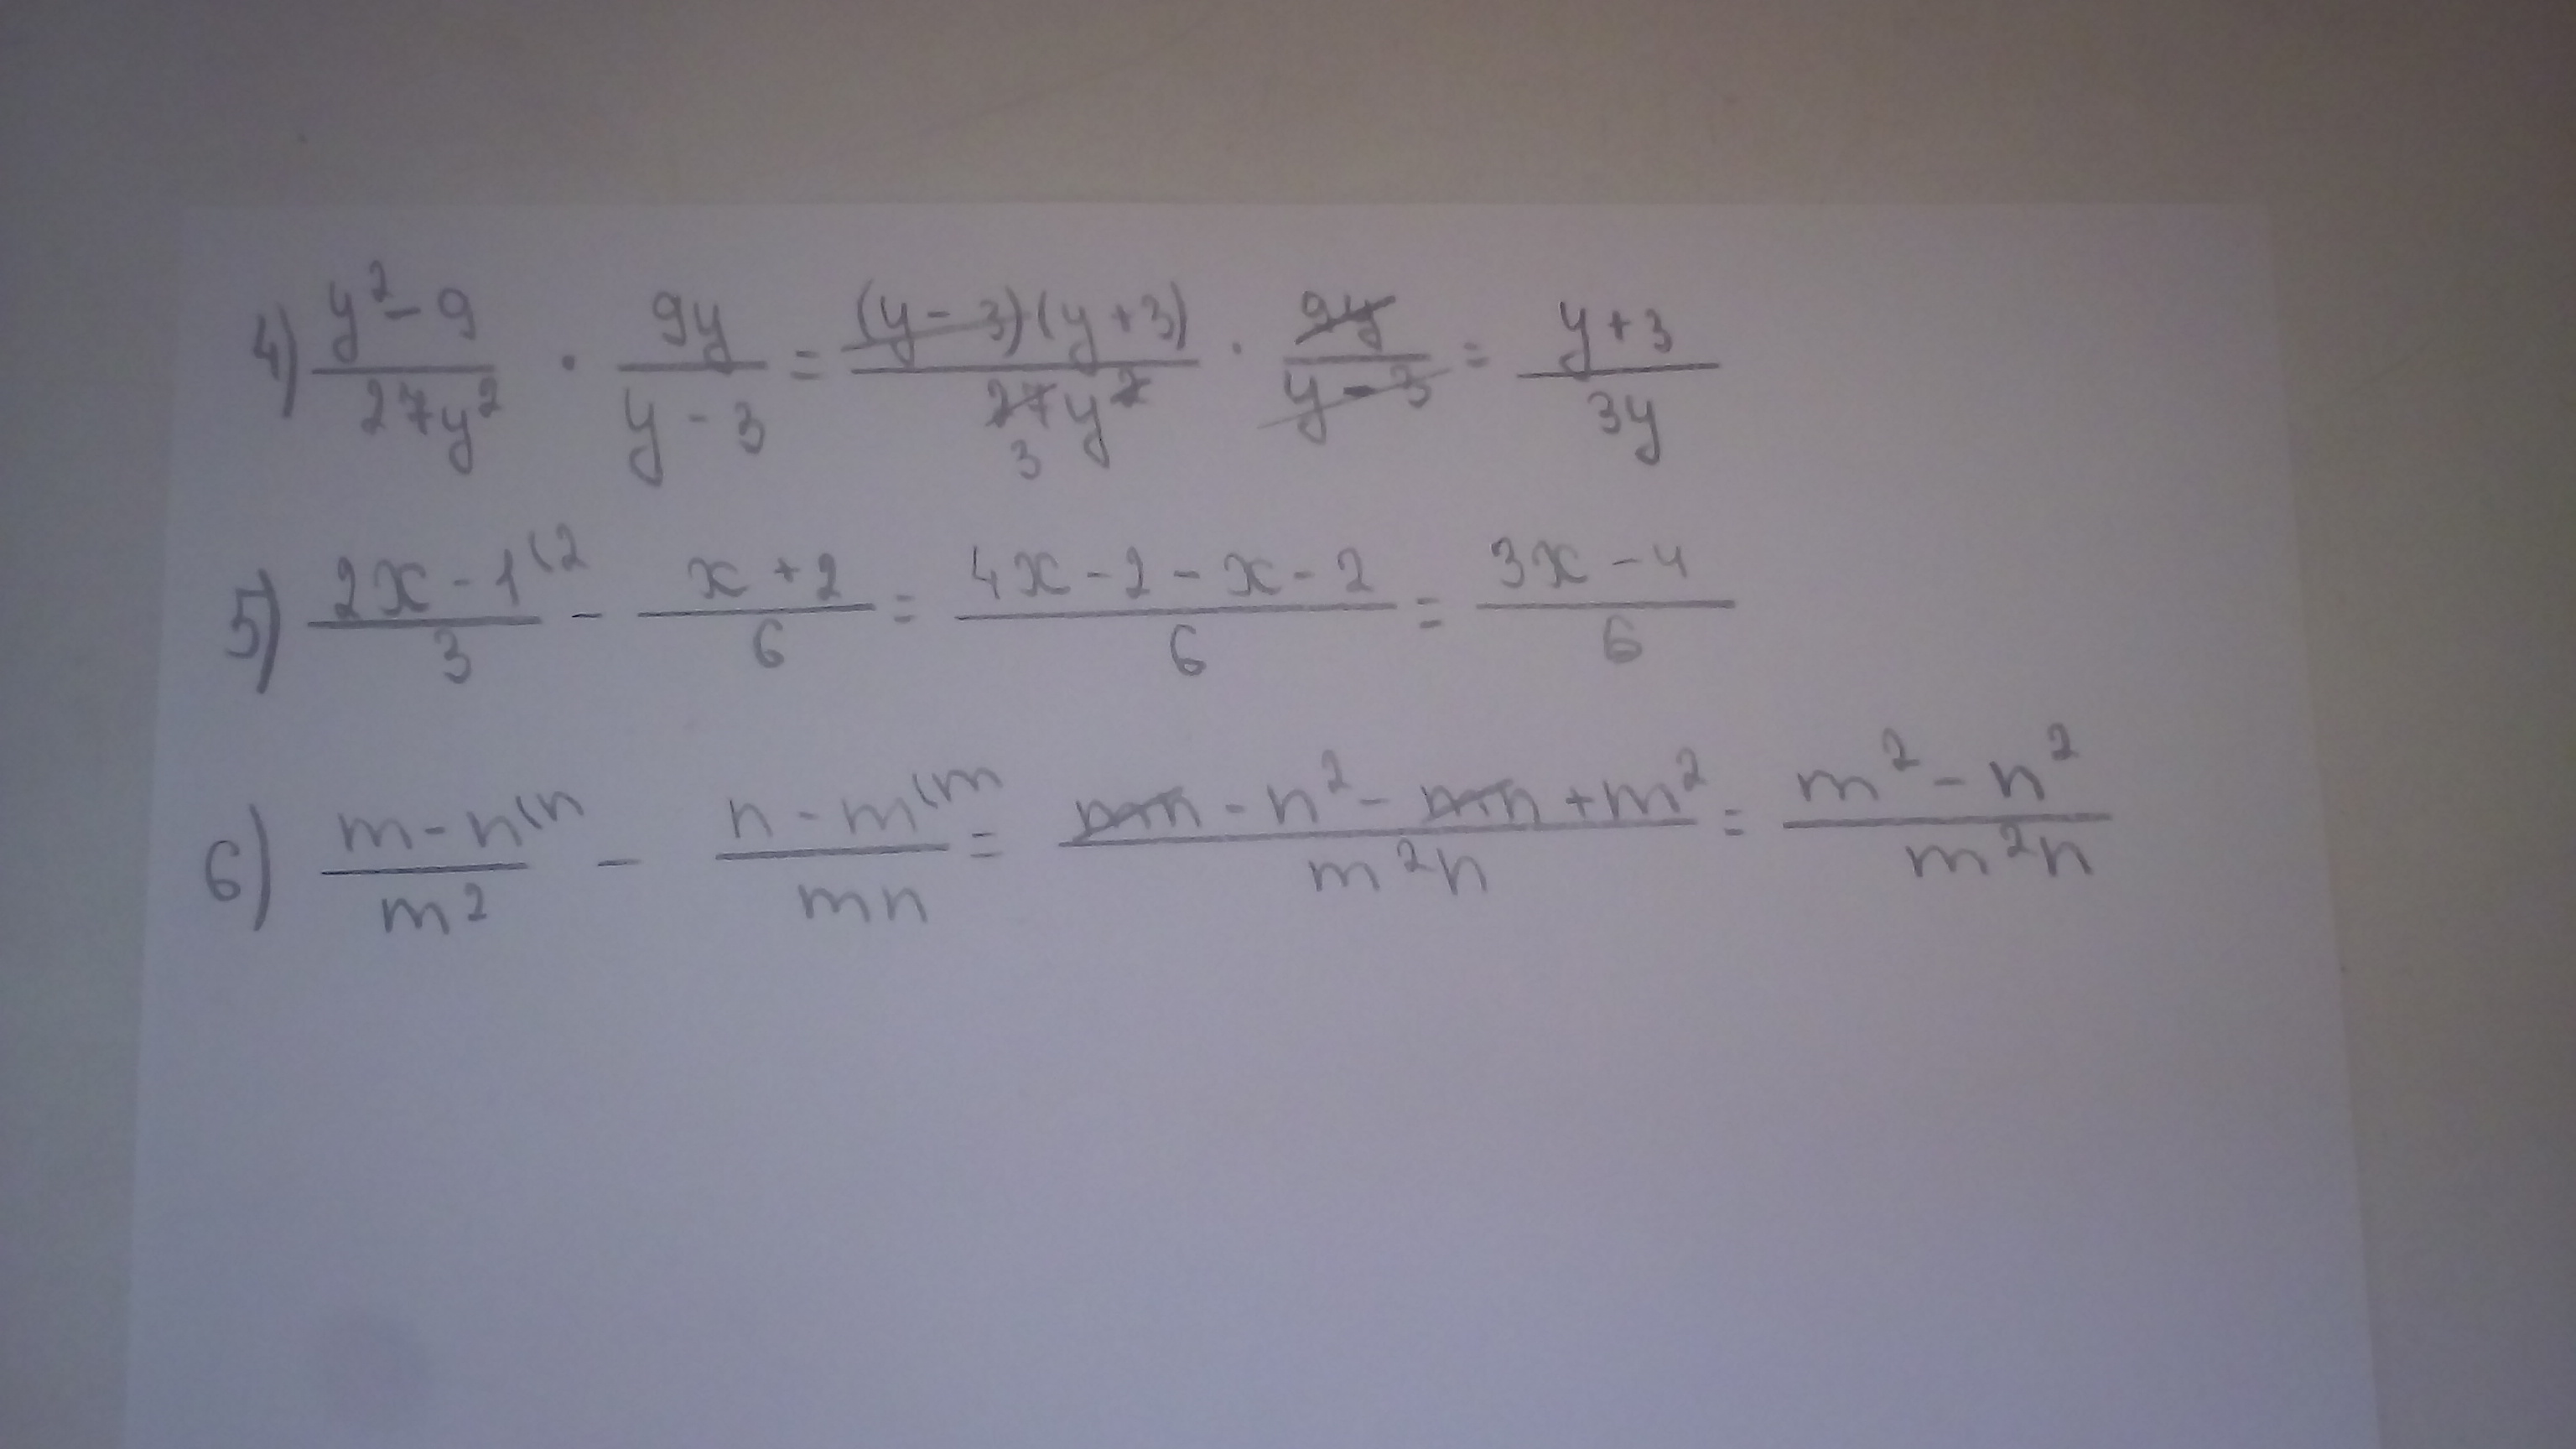 4) \frac{y^2-9}{27y^2} \cdot \frac{9y}{y-3} = \frac{(y-3)(y+3)}{27y^2} \cdot \frac{9y}{y-3} = \frac{y+3}{3y}
3
5) \frac{2x-1^{(2}}{3} - \frac{x+2}{6} = \frac{4x-2-x-2}{6} = \frac{3x-4}{6}
6) \frac{m-n^{(n}}{m^2} - \frac{n-m^{(m}}{mn} = \frac{mn-n^2-mn+m^2}{m^2n} = \frac{m^2-n^2}{m^2n}